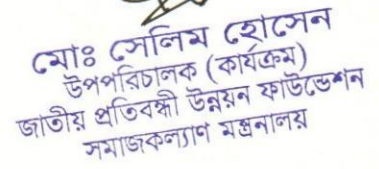 মোঃ সেলিম হোসেন
উপপরিচালক (কার্যক্রম)
জাতীয় প্রতিবন্ধী উন্নয়ন ফাউন্ডেশন
সমাজকল্যাণ মন্ত্রনালয়